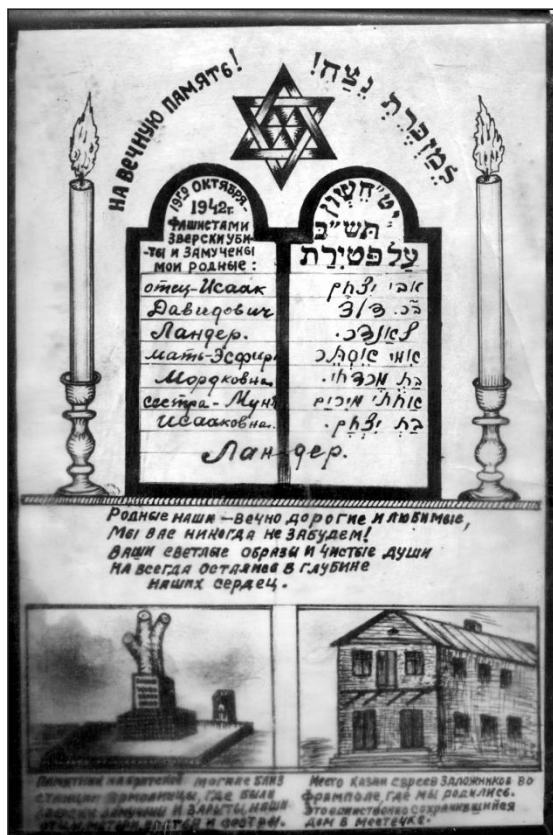 НА ВЕЧНУЮ ПАМЯТЬ!
לְמַזְכֶּרֶת נֵצַח!
1959 ОКТЯБРЯ-
1942г.
ФАШИСТАМИ
ЗВЕРСКИ УБИ-
ТЫ И ЗАМУЧЕНЫ
МОИ РОДНЫЕ:
отец-Исаак
Давидович
Ландер.
мать-Эсфирь
Мордковна.
сестра-Муня
Исааковна.
י״ט חֶשְׁוָן
תש״ב
עַל פְּטִירַת
אבי יצחק
ב״כ דוד
לאנדר.
אמי אסתר
בת מרדכי.
אחותי מרים
בת יצחק.
Ландер.
РОДНЫЕ НАШИ – ВЕЧНО ДОРОГИЕ И ЛЮБИМЫЕ,
МЫ ВАС НИКОГДА НЕ ЗАБУДЕМ!
ВАШИ СВЕТЛЫЕ ОБРАЗЫ И ЧИСТЫЕ ДУШИ
НА ВСЕГДА ОСТАЛИСЬ В ГЛУБИНЕ
НАШИХ СЕРДЕЦ.
Памятник на братской могиле близ
станции Ярмолинцы, где были
зверски замучены и зарыты, наши
отцы, матери, братья и сестры.
Место казни евреев заложников во
Фрамполе, где мы родились.
Это единственно сохранившийся
дом в местечке.